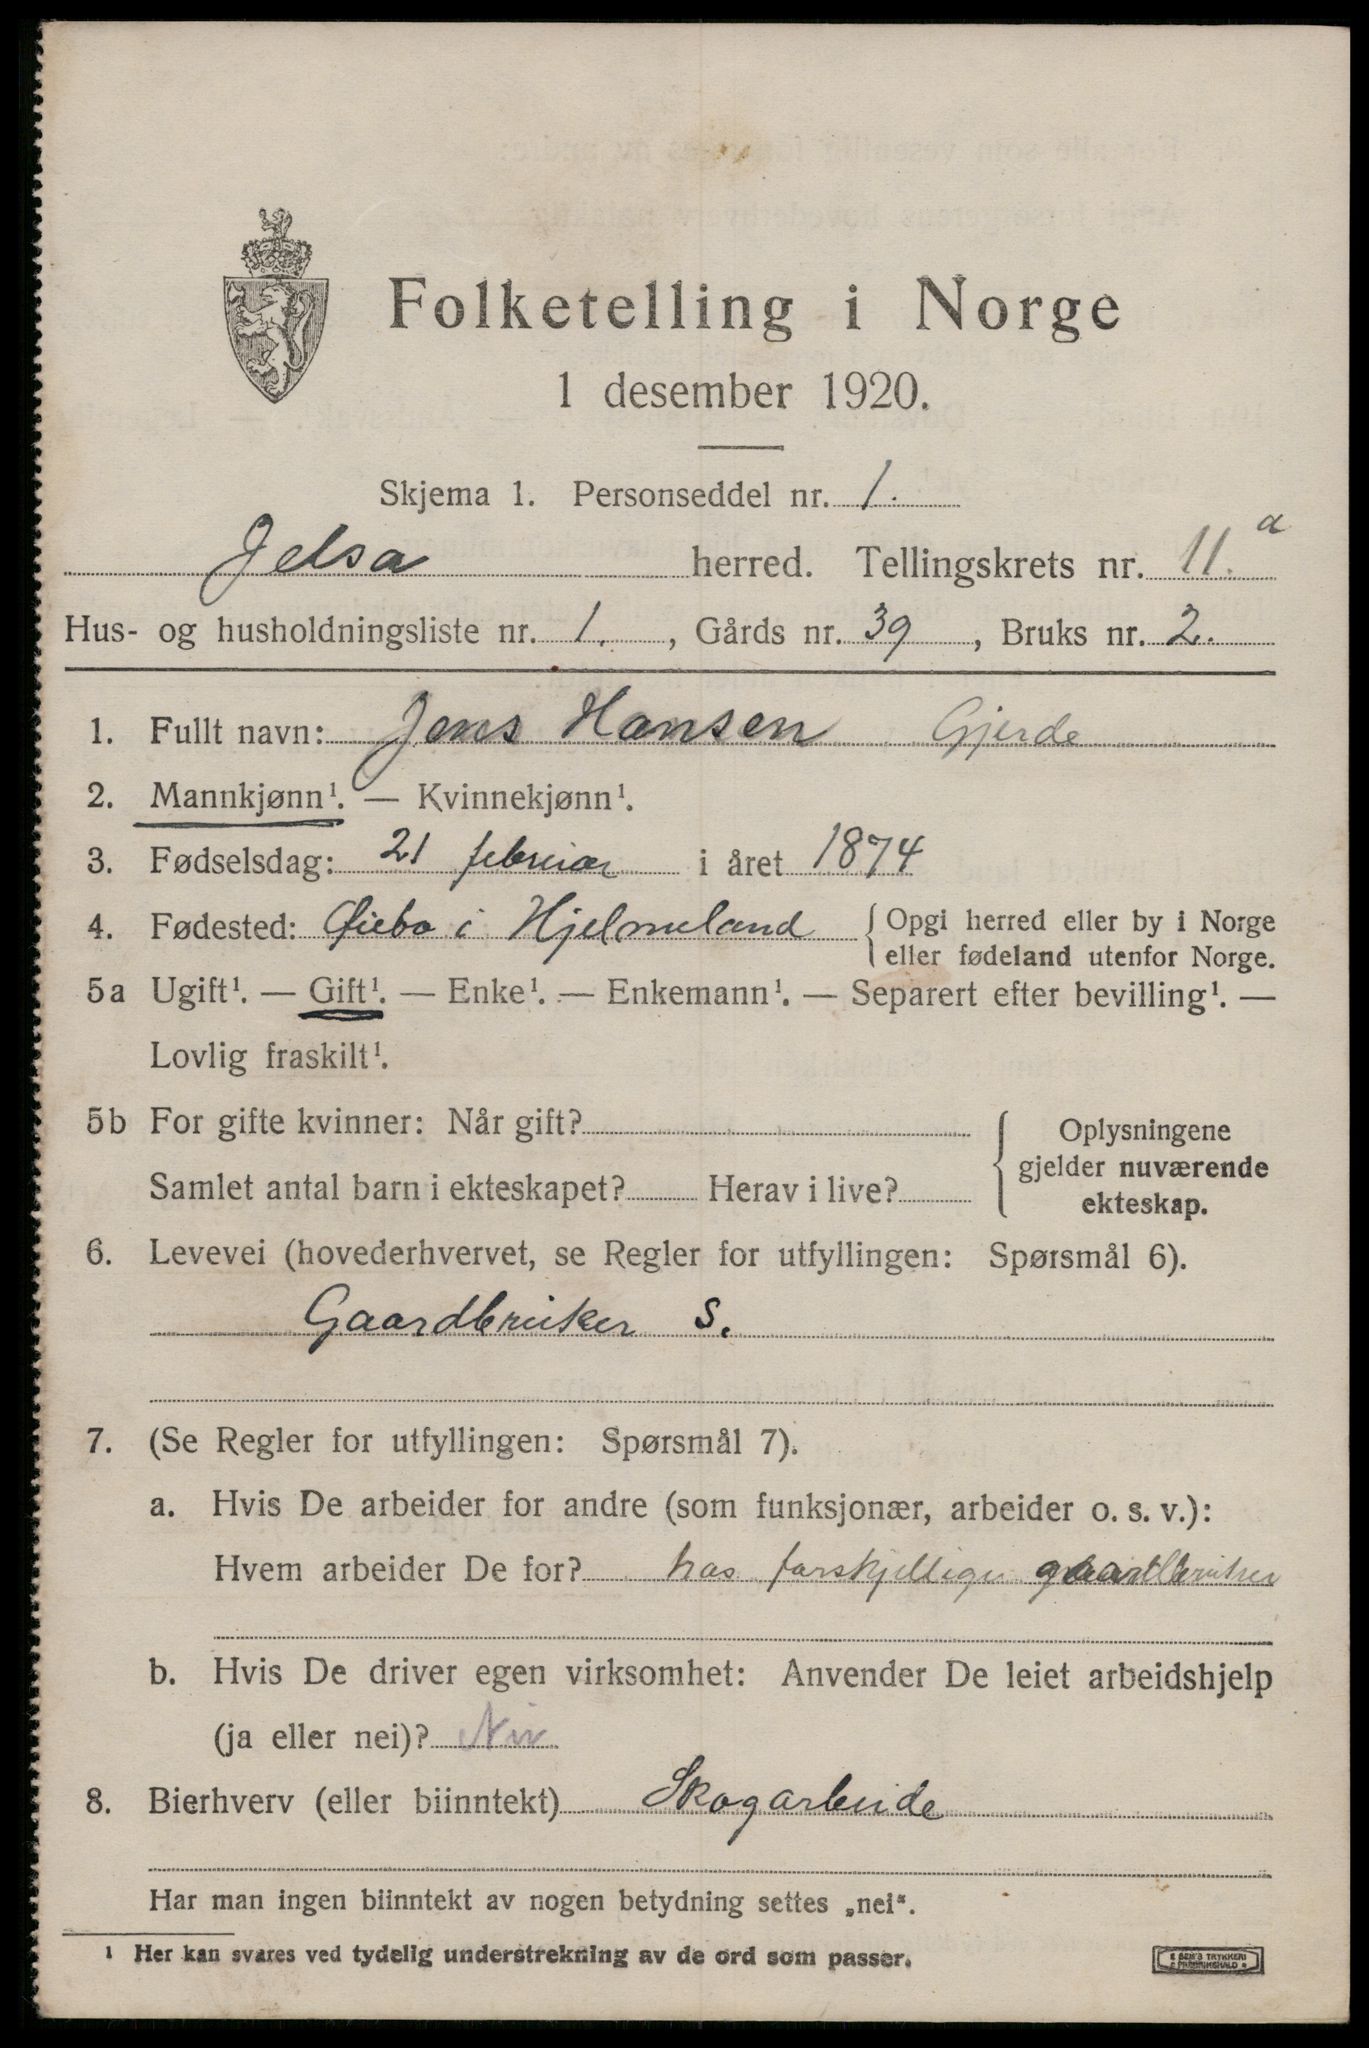 Folketelling i Norge
1 desember 1920.
Skjema 1. Personseddel nr. 1.
Jelsa herred. Tellingskrets nr. 11.a
Hus- og husholdningsliste nr. 1. , Gårds nr. 39 , Bruks nr. 2.
1. Fullt navn: Jens Hansen Gjerde
2. Mannkjønn¹. — Kvinnekjønn¹.
3. Fødselsdag: 21 februar i året 1874
4. Fødested: Øiebø i Hjelmeland { Opgi herred eller by i Norge
eller fødeland utenfor Norge.
5a Ugift¹. — Gift¹. — Enke¹. — Enkemann¹. — Separert efter bevilling¹. —
Lovlig fraskilt¹.
5b For gifte kvinner: Når gift? { Oplysningene
gjelder nuværende
Samlet antal barn i ekteskapet? Herav i live?
ekteskap.
6. Levevei (hovederhvervet, se Regler for utfyllingen: Spørsmål 6).
Gaardbruker S.
7. (Se Regler for utfyllingen: Spørsmål 7).
a. Hvis De arbeider for andre (som funksjonær, arbeider o. s. v.):
Hvem arbeider De for? hos forskjellige gaardbruker
b. Hvis De driver egen virksomhet: Anvender De leiet arbeidshjelp
(ja eller nei)? Nei
8. Bierhverv (eller biinntekt) Skogarbeide
Har man ingen biinntekt av nogen betydning settes „nei“.
¹ Her kan svares ved tydelig understrekning av de ord som passer.